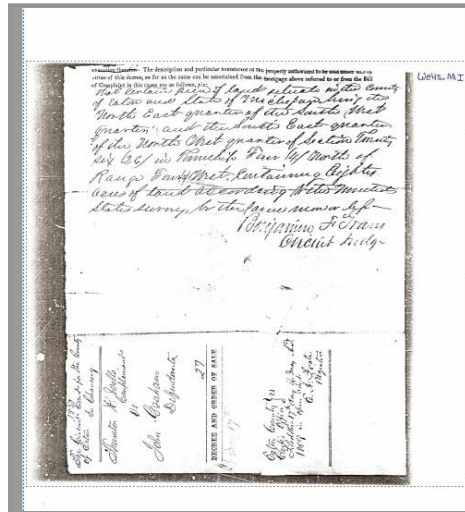 execution therefor. The description and particular boundaries of the property authorized to be sold under and by
virtue of this decree, so far as the same can be ascertained from the mortgage above referred to or from the Bill
of Complaint in this cause are as follows, viz:
that certain piece of land situate in the County
of Eaton and State of Michigan being the
North East quarter of the South West
quarter: and the South East quarter
of the North West quarter of Section Twenty
six (26) in Township Four (4) North of
Range Four West, Containing Eighty
acres of land according to the United
States survey be the same more or less
Benjamin F.
Circuit Judge
Wells, MI
The Circuit Court for the County
of Eaton In Chancery
Wells
Complainant
vs.
John Graham
Defendant
DECREE AND ORDER OF SALE
27
Eaton County ss
1859 in
Register